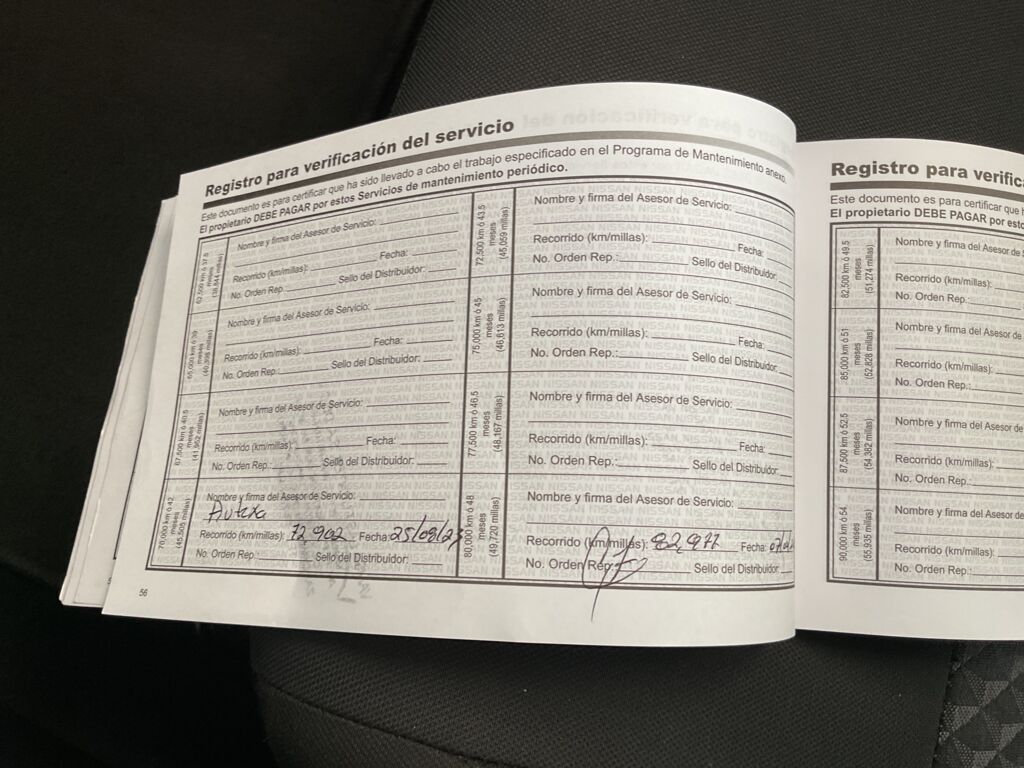 Registro para verificación del servicio
Este documento es para certificar que ha sido llevado a cabo el trabajo especificado en el Programa de Mantenimiento anexo.
El propietario DEBE PAGAR por estos Servicios de mantenimiento periódico.
62,500 km ó 37.5
meses
(38,844 millas)
Nombre y firma del Asesor de Servicio:
Recorrido (km/millas): Fecha:
No. Orden Rep. Sello del Distribuidor:
65,000 km ó 39
meses
(40,398 millas)
Nombre y firma del Asesor de Servicio:
Recorrido (km/millas): Fecha:
No. Orden Rep.: Sello del Distribuidor:
67,500 km ó 40.5
meses
(41,952 millas)
Nombre y firma del Asesor de Servicio:
Recorrido (km/millas): Fecha:
No. Orden Rep.: Sello del Distribuidor:
70,000 km ó 42
meses
(45,505 millas)
Nombre y firma del Asesor de Servicio:
Recorrido (km/millas): 72,902 Fecha: 25/08/23
No. Orden Rep. Sello del Distribuidor:
72,500 km ó 43.5
meses
(45,059 millas)
Nombre y firma del Asesor de Servicio:
Recorrido (km/millas): Fecha:
No. Orden Rep.: Sello del Distribuidor:
75,000 km ó 45
meses
(46,613 millas)
Nombre y firma del Asesor de Servicio:
Recorrido (km/millas): Fecha:
No. Orden Rep.: Sello del Distribuidor:
77,500 km ó 46.5
meses
(48,167 millas)
Nombre y firma del Asesor de Servicio:
Recorrido (km/millas): Fecha:
No. Orden Rep.: Sello del Distribuidor:
80,000 km ó 48
meses
(49,720 millas)
Nombre y firma del Asesor de Servicio:
Recorrido (km/millas): 82,977 Fecha:
No. Orden Rep.: Sello del Distribuidor:
56
Registro para verifica
Este documento es para certificar que
El propietario DEBE PAGAR por esto
82,500 km ó 49.5
meses
(51,274 millas)
Nombre y firma del Asesor de
Recorrido (km/millas):
No. Orden Rep.:
85,000 km ó 51
meses
(52,828 millas)
Nombre y firma del Asesor de
Recorrido (km/millas):
No. Orden Rep.:
87,500 km ó 52.5
meses
(54,382 millas)
Nombre y firma del Asesor de
Recorrido (km/millas):
No. Orden Rep.:
90,000 km ó 54
meses
(55,935 millas)
Nombre y firma del Asesor de
Recorrido (km/millas):
No. Orden Rep.: